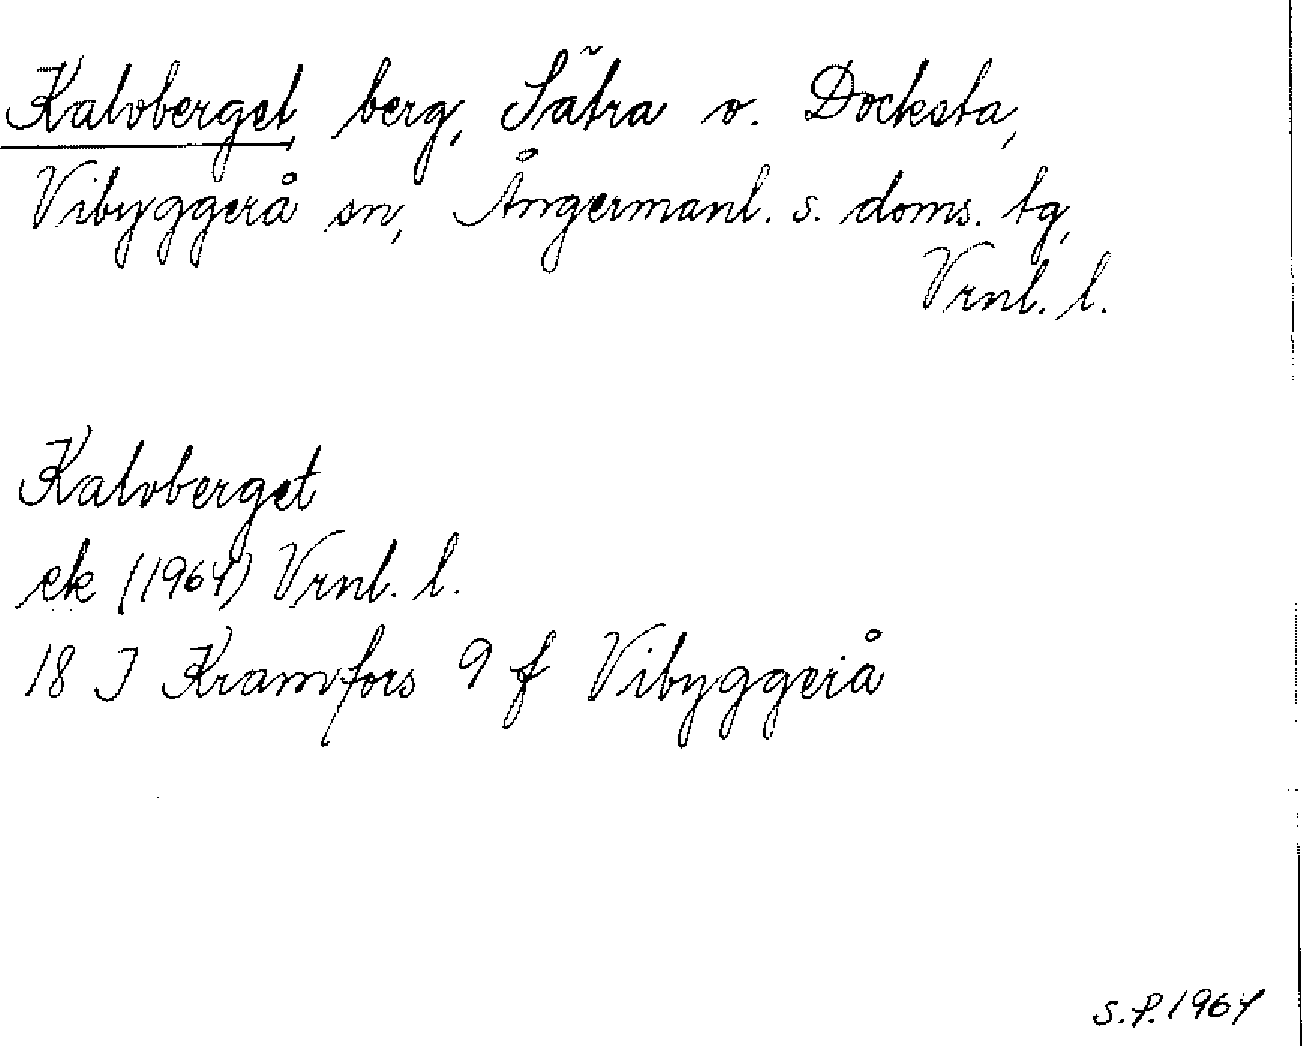 Kalvberget, berg, Sätra v. Docksta,
Vibyggerå sn, Ångermanl. s. doms. tg,
Vrnl. l.
Kalvberget
ek (1964) Vrnl. l.
18 J Kramfors 9 f Vibyggerå
S.P. 1964